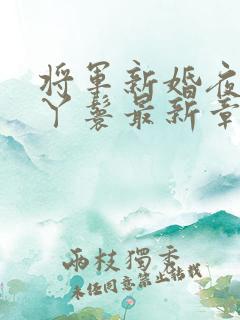 將軍新婚夜
丫鬟最新章
兩枝獨秀
未經同意禁止轉載